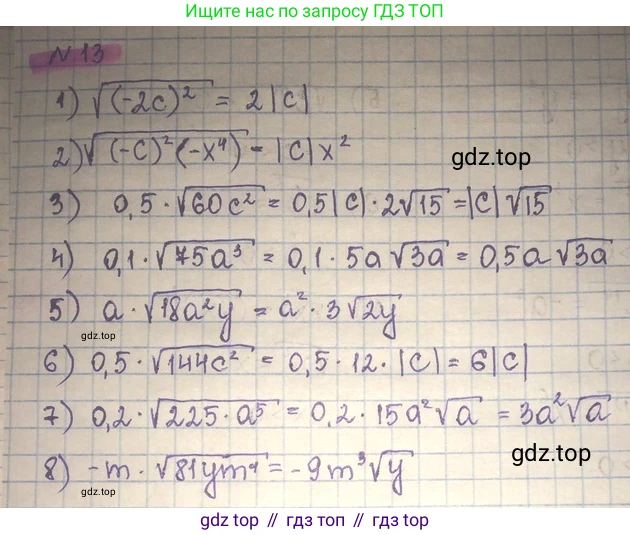 Ищите нас по запросу ГДЗ ТОП
N 13
1) √(-2c)² = 2|c|
2) √(-c)²(-x⁴) = |c|x²
gdz.top
3) 0,5 · √60c² = 0,5|c| · 2√15 = |c|√15
4) 0,1 · √75a³ = 0,1 · 5a√3a = 0,5a√3a
5) a · √18a²y = a² · 3√2y
gdz.top
6) 0,5 · √144c² = 0,5 · 12 · |c| = 6|c|
7) 0,2 · √225 · a⁵ = 0,2 · 15a²√a = 3a²√a
8) -m · √81ym⁴ = -9m³√y
gdz.top
gdz top // гдз топ // gdz.top